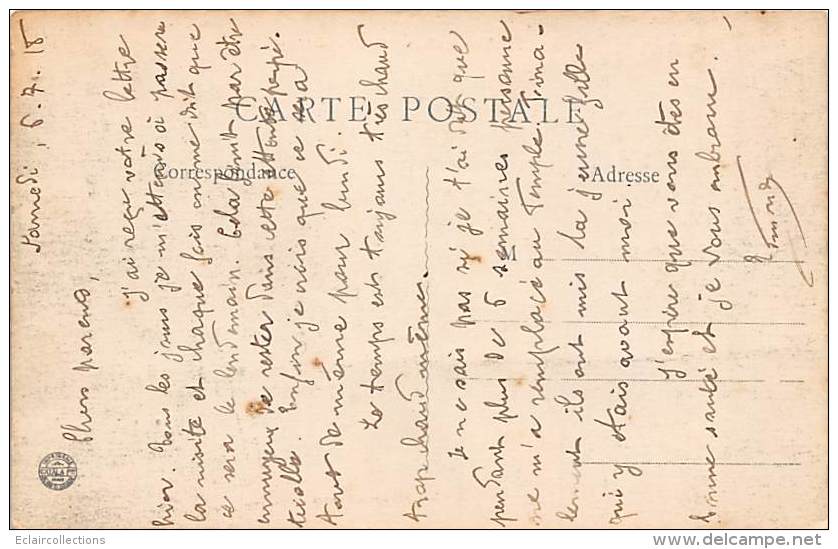 Samedi, 6.7.18
Chers parents,
J'ai reçu votre lettre
hier. Tous les jours je m'attends à passer
la visite et chaque fois on me dit que
ce sera le lendemain. Cela finit par être
ennuyeux de rester dans cette
Enfin je crois que ce sera
tout de même pour lundi.
Le temps est toujours très chaud
trop chaud même.
Je ne sais pas si je t'ai dit que
pendant plus de 5 semaines personne
ne m'a remplacé au Temple, fina-
lement ils ont mis la jeune fille
qui y était avant moi.
J'espère que vous êtes en
bonne santé et je vous embrasse.
CARTE POSTALE
Correspondance
Adresse
M
Eclaircollections
www.delcampe.net